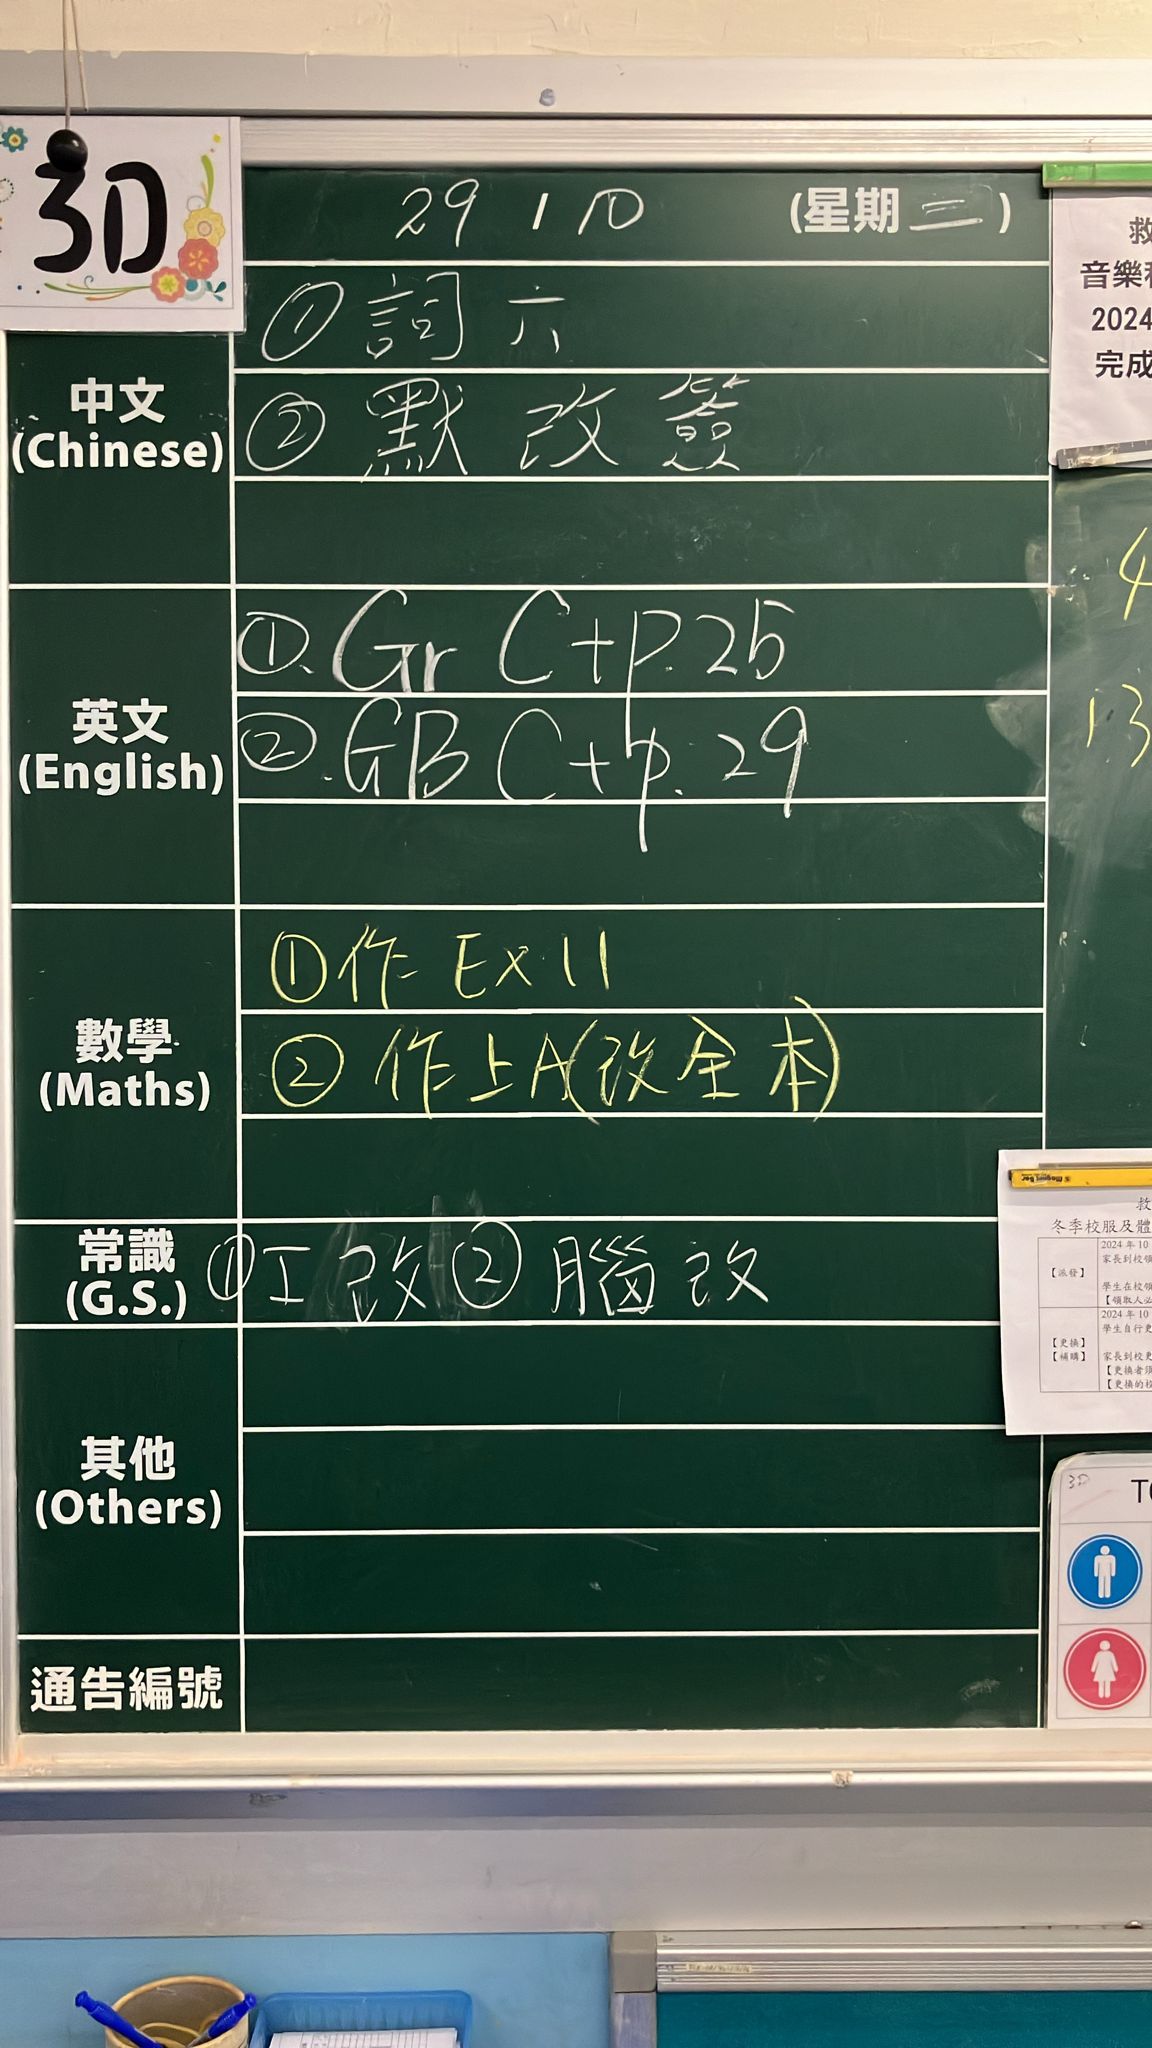 3D
29 / 10 (星期二)
中文
(Chinese)
① 詞 六
② 默 改 簽
英文
(English)
①. Gr C+p.25
②. GB C+p.29
數學
(Maths)
① 作 Ex 11
② 作上A(改全本)
常識
(G.S.)
① 工 改 ② 腦 改
其他
(Others)
通告編號
救
音樂科
2024
完成
4
13
救
冬季校服及體
【派發】
2024 年 10
家長到校領
學生在校領
【領取人必
【更換】
【補購】
2024 年 10
學生自行更
家長到校更
【更換者須
【更換的校
3D